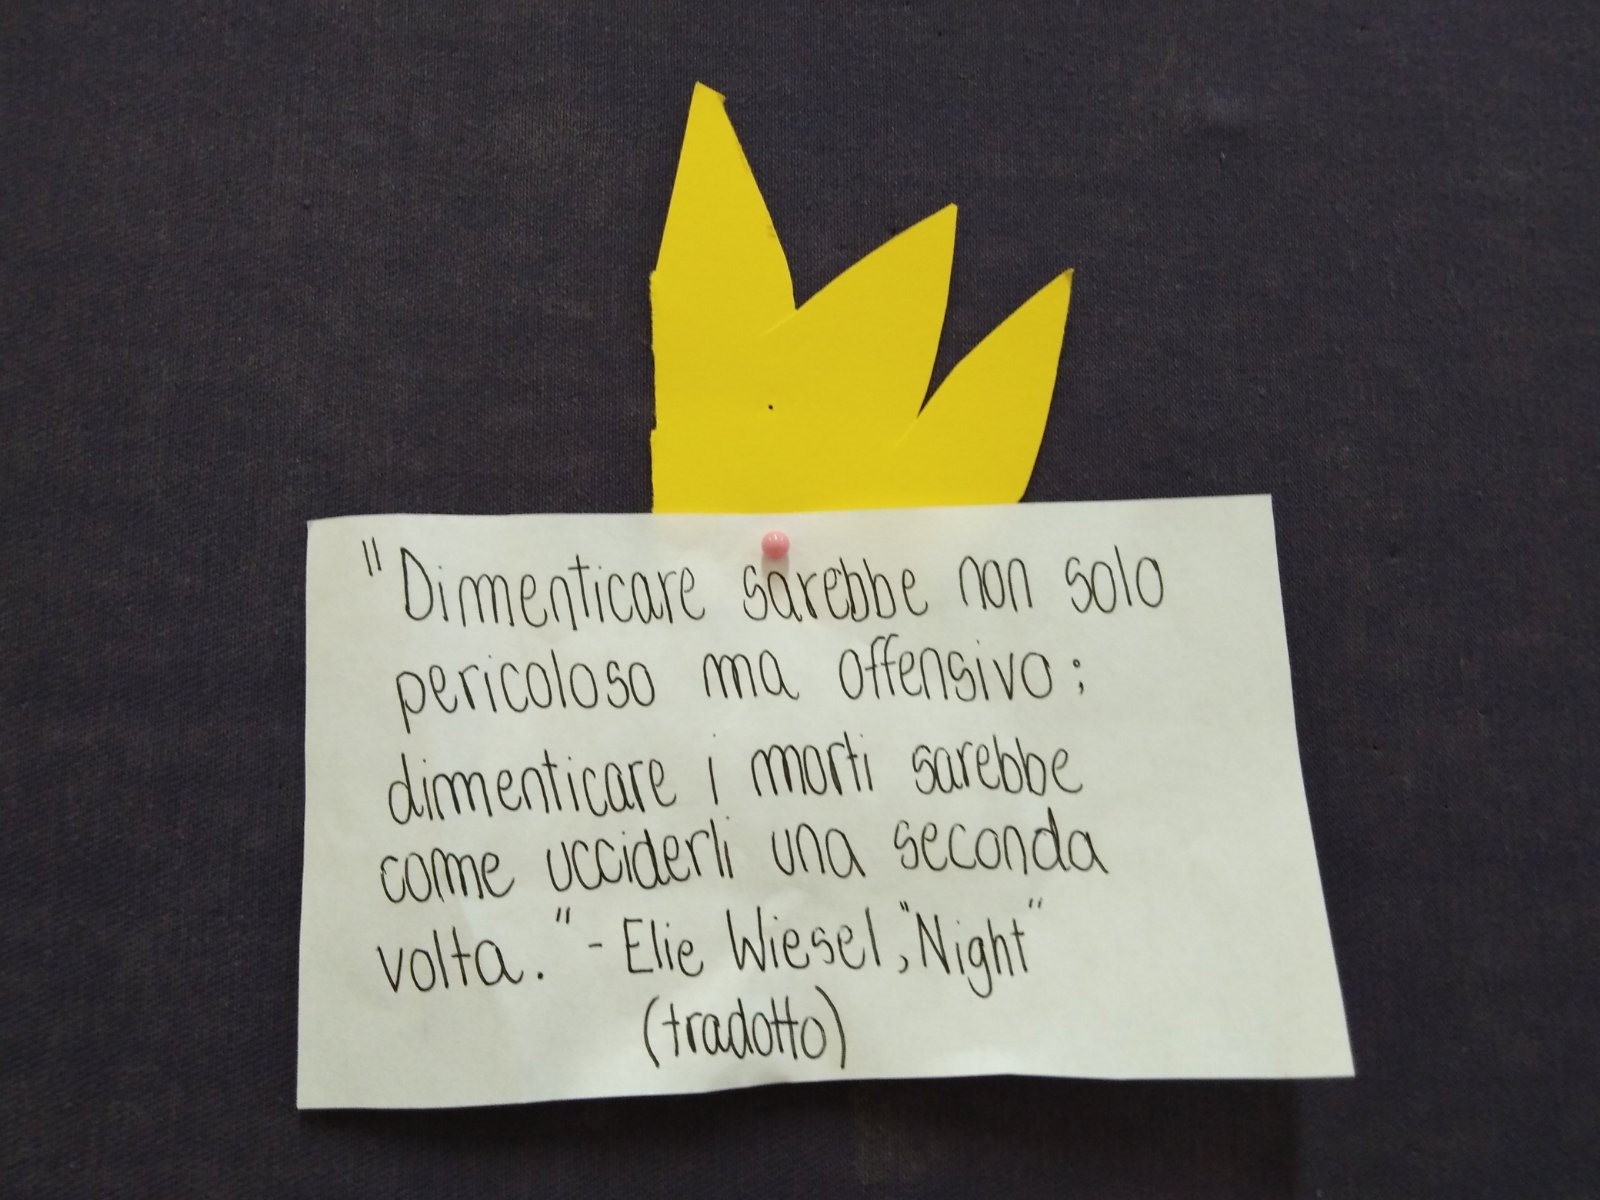 "Dimenticare sarebbe non solo
pericoloso ma offensivo;
dimenticare i morti sarebbe
come ucciderli una seconda
volta." - Elie Wiesel, "Night"
(tradotto)